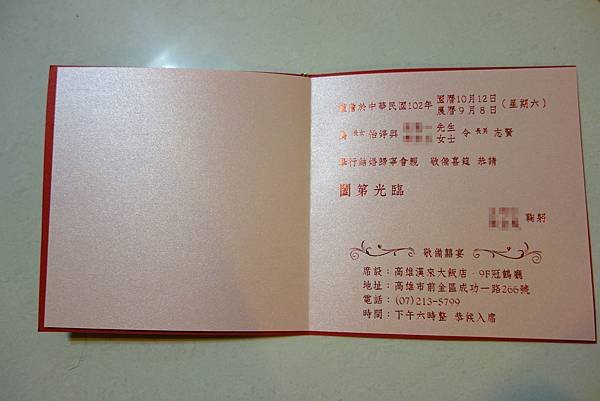 謹詹於中華民國102年 國曆10月12日 農曆9月8日 (星期六)
為 長女 怡婷與 先生 女士 令 長男 志賢
舉行結婚歸寧會親 敬備喜筵 恭請
闔第光臨
鞠躬
敬備囍宴
席設：高雄漢來大飯店．9F冠鶴廳
地址：高雄市前金區成功一路266號
電話：(07)213-5799
時間：下午六時整 恭候入席